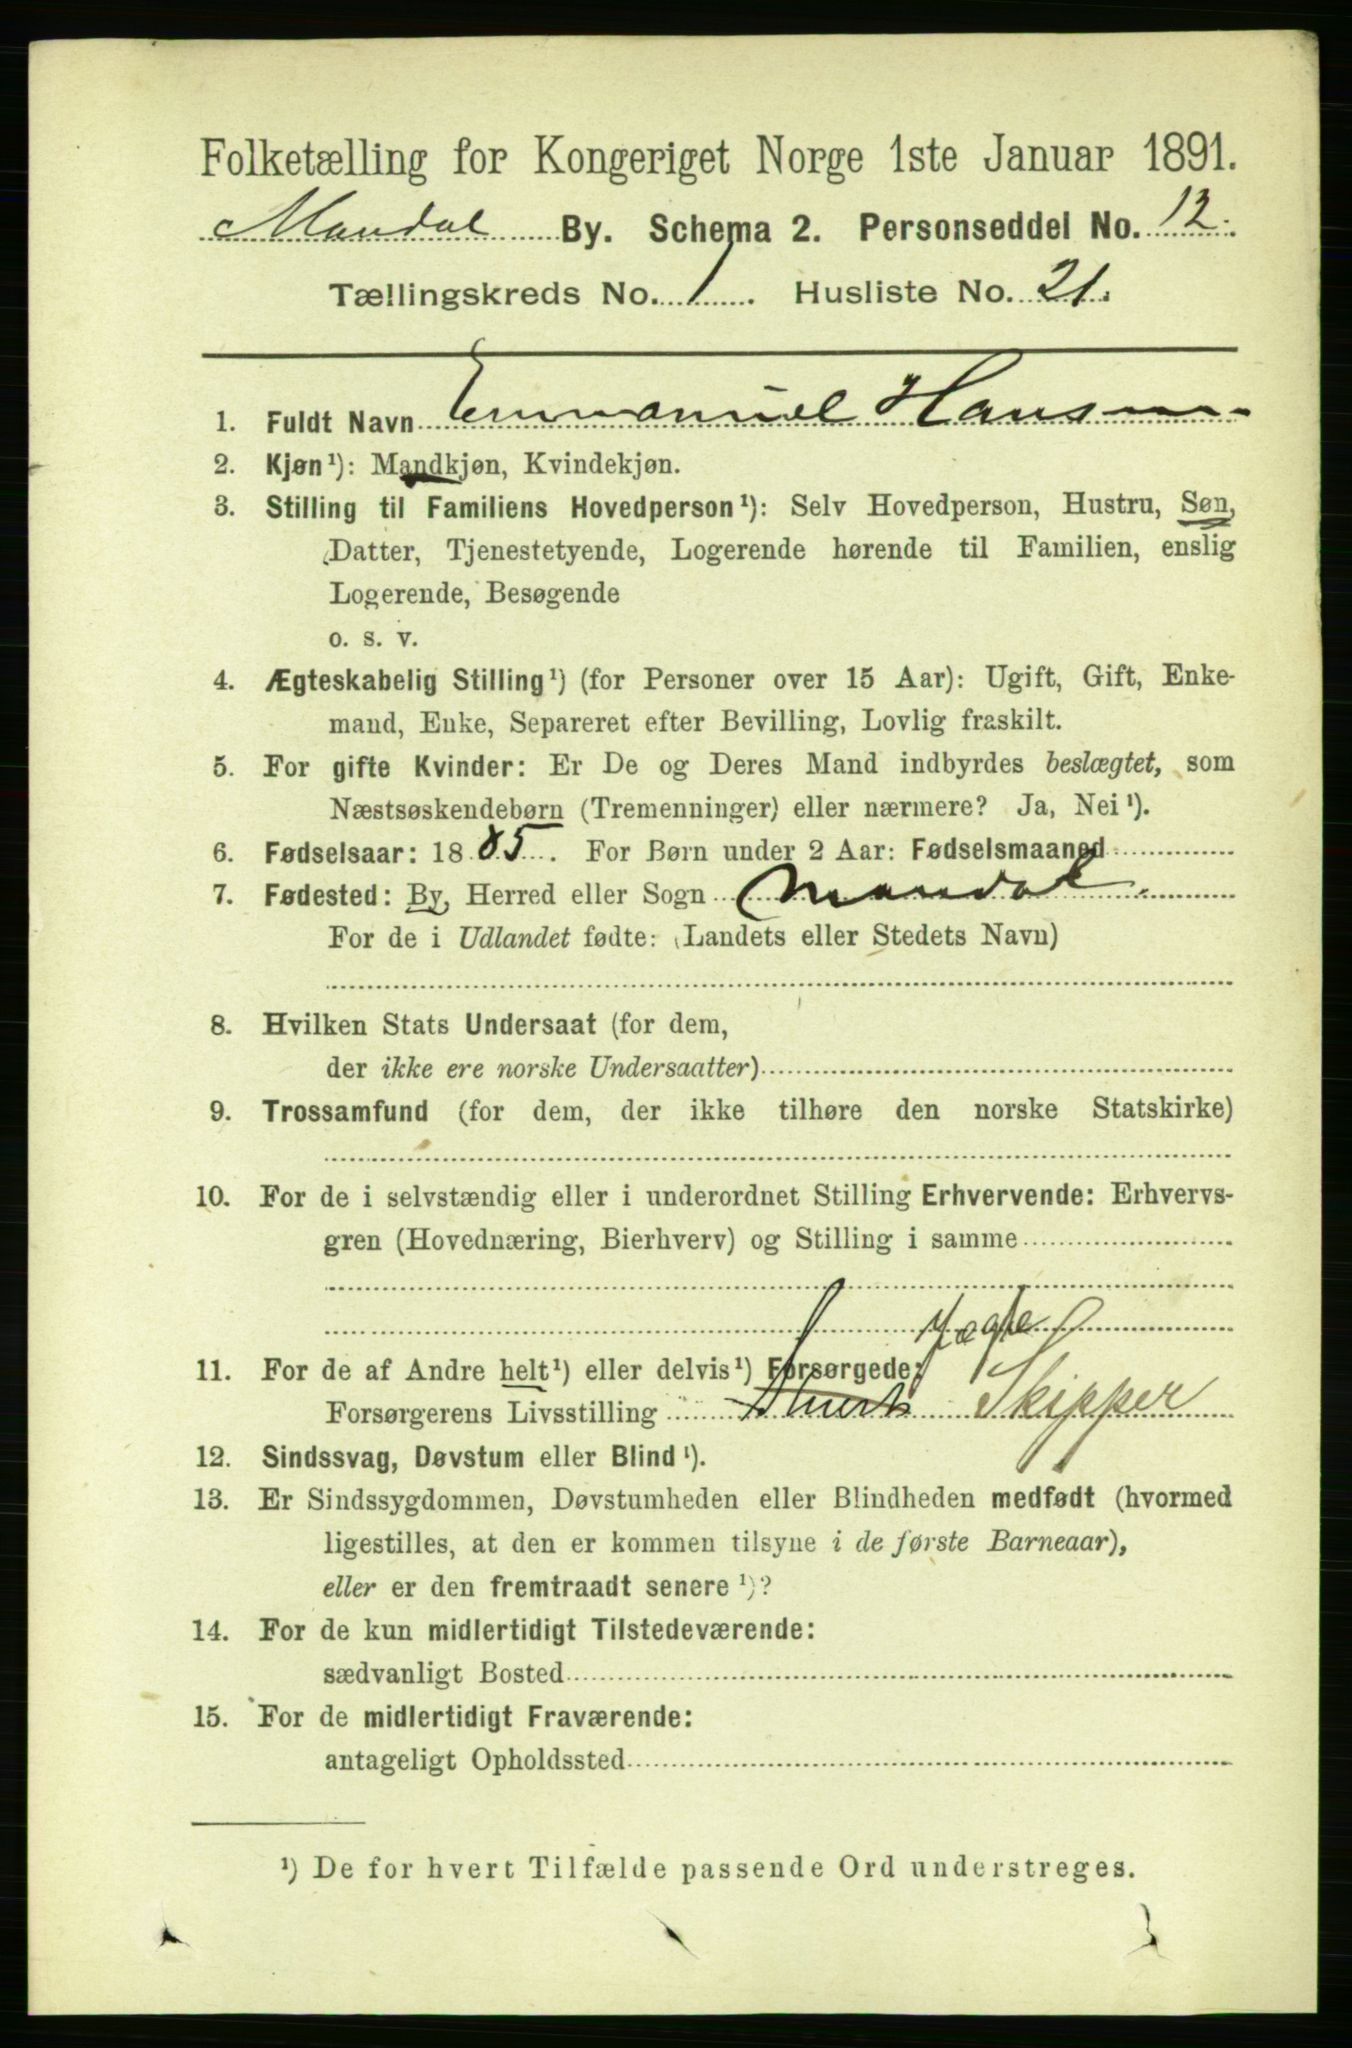 Folketælling for Kongeriget Norge 1ste Januar 1891.
Mandal By. Schema 2. Personseddel No. 12.
Tællingskreds No. 1. Husliste No. 21.
1. Fuldt Navn Emmanuel Hansen
2. Kjøn¹): Mandkjøn, Kvindekjøn.
3. Stilling til Familiens Hovedperson¹): Selv Hovedperson, Hustru, Søn,
Datter, Tjenestetyende, Logerende hørende til Familien, enslig
Logerende, Besøgende
o. s. v.
4. Ægteskabelig Stilling¹) (for Personer over 15 Aar): Ugift, Gift, Enke-
mand, Enke, Separeret efter Bevilling, Lovlig fraskilt.
5. For gifte Kvinder: Er De og Deres Mand indbyrdes beslægtet, som
Næstsøskendebørn (Tremenninger) eller nærmere? Ja, Nei¹).
6. Fødselsaar: 1885. For Børn under 2 Aar: Fødselsmaaned
7. Fødested: By, Herred eller Sogn Mandal.
For de i Udlandet fødte: (Landets eller Stedets Navn)
8. Hvilken Stats Undersaat (for dem,
der ikke ere norske Undersaatter)
9. Trossamfund (for dem, der ikke tilhøre den norske Statskirke)
10. For de i selvstændig eller i underordnet Stilling Erhvervende: Erhvervs-
gren (Hovednæring, Bierhverv) og Stilling i samme
Jagte
11. For de af Andre helt¹) eller delvis¹) Forsørgede:
Forsørgerens Livsstilling Skipper
12. Sindssvag, Døvstum eller Blind¹).
13. Er Sindssygdommen, Døvstumheden eller Blindheden medfødt (hvormed
ligestilles, at den er kommen tilsyne i de første Barneaar),
eller er den fremtraadt senere¹)?
14. For de kun midlertidigt Tilstedeværende:
sædvanligt Bosted
15. For de midlertidigt Fraværende:
antageligt Opholdssted
¹) De for hvert Tilfælde passende Ord understreges.